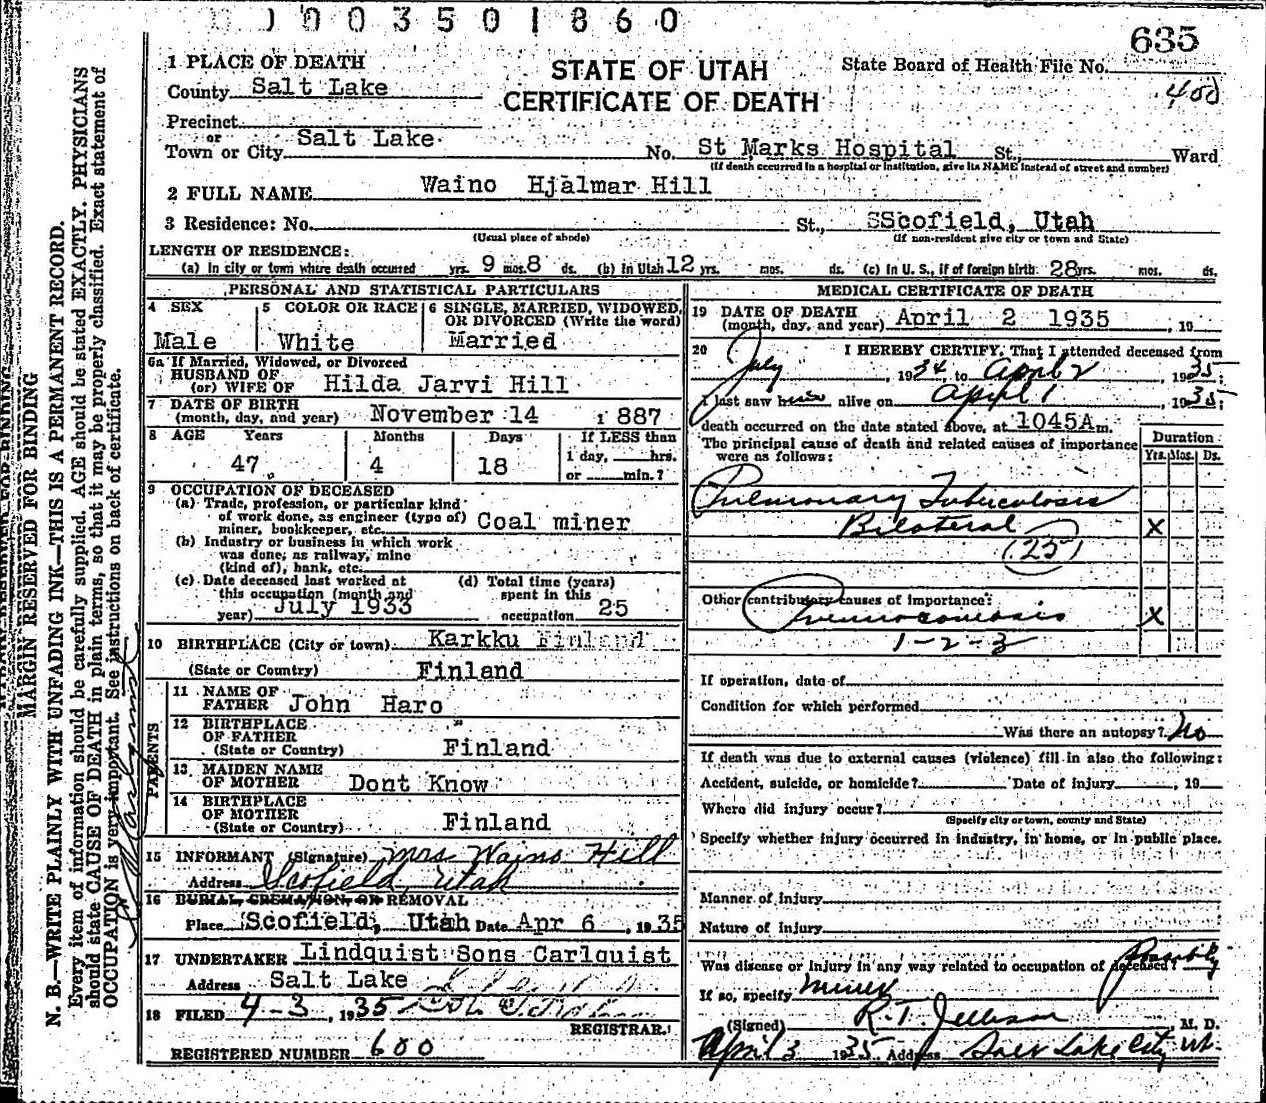 1003501860
635
State Board of Health File No.
400
STATE OF UTAH
CERTIFICATE OF DEATH
1 PLACE OF DEATH
County Salt Lake
Precinct
or
Town or City Salt Lake No. St Marks Hospital St., Ward
(If death occurred in a hospital or institution, give its NAME instead of street and number)
2 FULL NAME Waino Hjalmar Hill
3 Residence: No. St., SScofield, Utah
(Usual place of abode) (If non-resident give city or town and State)
LENGTH OF RESIDENCE:
(a) In city or town where death occurred yrs. 9 mos. 8 ds. (b) In Utah 12 yrs. mos. ds. (c) In U. S., if of foreign birth 28 yrs. mos. ds.
PERSONAL AND STATISTICAL PARTICULARS
4 SEX
Male
5 COLOR OR RACE
White
6 SINGLE, MARRIED, WIDOWED, OR DIVORCED (Write the word)
Married
6a If Married, Widowed, or Divorced
HUSBAND OF
(or) WIFE OF Hilda Jarvi Hill
7 DATE OF BIRTH
(month, day, and year) November 14 1887
8 AGE Years Months Days If LESS than
47 4 18 1 day, hrs.
or min.?
9 OCCUPATION OF DECEASED
(a) Trade, profession, or particular kind
of work done, as engineer (type of)
miner, bookkeeper, etc. Coal miner
(b) Industry or business in which work
was done; as railway, mine
(kind of), bank, etc.
(c) Date deceased last worked at
this occupation (month and
year) July 1933
(d) Total time (years)
spent in this
occupation 25
10 BIRTHPLACE (City or town) Karkku Finland
(State or Country) Finland
PARENTS
11 NAME OF
FATHER John Haro
12 BIRTHPLACE
OF FATHER
(State or Country) Finland
13 MAIDEN NAME
OF MOTHER Dont Know
14 BIRTHPLACE
OF MOTHER
(State or Country) Finland
15 INFORMANT (Signature) Mrs Waino Hill
Address Scofield, Utah
16 BURIAL, CREMATION, OR REMOVAL
Place Scofield, Utah Date Apr 6, 1935
17 UNDERTAKER Lindquist Sons Carlquist
Address Salt Lake
18 FILED 4-3, 1935
REGISTRAR.
REGISTERED NUMBER 600
MEDICAL CERTIFICATE OF DEATH
19 DATE OF DEATH
(month, day, and year) April 2 1935, 19
20 I HEREBY CERTIFY, That I attended deceased from
July, 1934 to April 2, 1935;
I last saw him alive on April 1, 1935;
death occurred on the date stated above, at 1045A m.
The principal cause of death and related causes of importance
were as follows:
Duration
Yrs. Mos. Ds.
Pulmonary Tuberculosis
Bilateral X
(25)
Other contributory causes of importance:
Pneumoconiosis X
1-2-3
If operation, date of
Condition for which performed
Was there an autopsy? No
If death was due to external causes (violence) fill in also the following:
Accident, suicide, or homicide? Date of injury, 19
Where did injury occur?
(Specify city or town, county and State)
Specify whether injury occurred in industry, in home, or in public place.
Manner of injury
Nature of injury
Was disease or injury in any way related to occupation of deceased? Possibly
If so, specify miner
(Signed) R.T. Jellison M. D.
April 3 1935 Address Salt Lake City Ut.
MARGIN RESERVED FOR BINDING
N. B.—WRITE PLAINLY WITH UNFADING INK—THIS IS A PERMANENT RECORD.
Every item of information should be carefully supplied. AGE should be stated EXACTLY. PHYSICIANS
should state CAUSE OF DEATH in plain terms, so that it may be properly classified. Exact statement of
OCCUPATION is very important. See instructions on back of certificate.